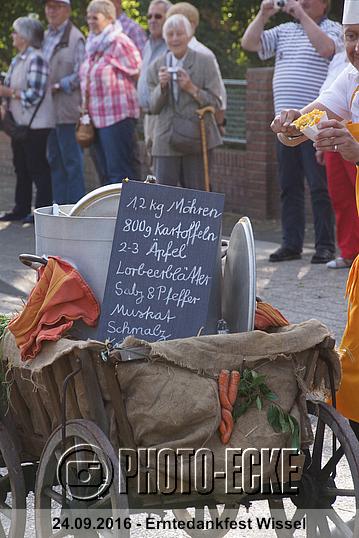 1,2 kg Möhren
800g Kartoffeln
2-3 Äpfel
Lorbeerblätter
Salz & Pfeffer
Muskat
Schmalz
© PHOTO-ECKE
24.09.2016 - Erntedankfest Wissel